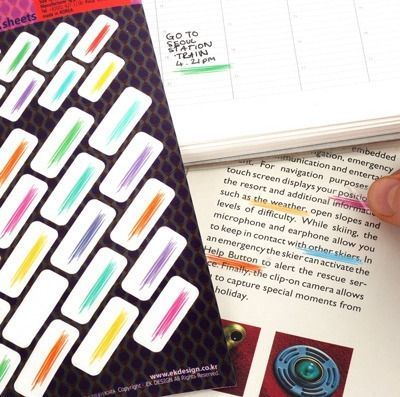 sheets
made in KOREA
GO TO
SEOUL
STATION
TRAIN
4.21pm
embedded
navigation, emergency
communication and entertai
ent. For navigation purposes
touch screen displays your
the resort and additional
such as the weather, open slopes and
levels of difficulty. While skiing, the
microphone and earphone allow you
to keep in contact with other skiers. In
an emergency the skier can activate the
Help Button to alert the rescue ser-
Finally, the clip-on camera allows
to capture special moments from
holiday.
www.ekdesign.co.kr
Copyright - EK DESIGN All Rights Reserved.